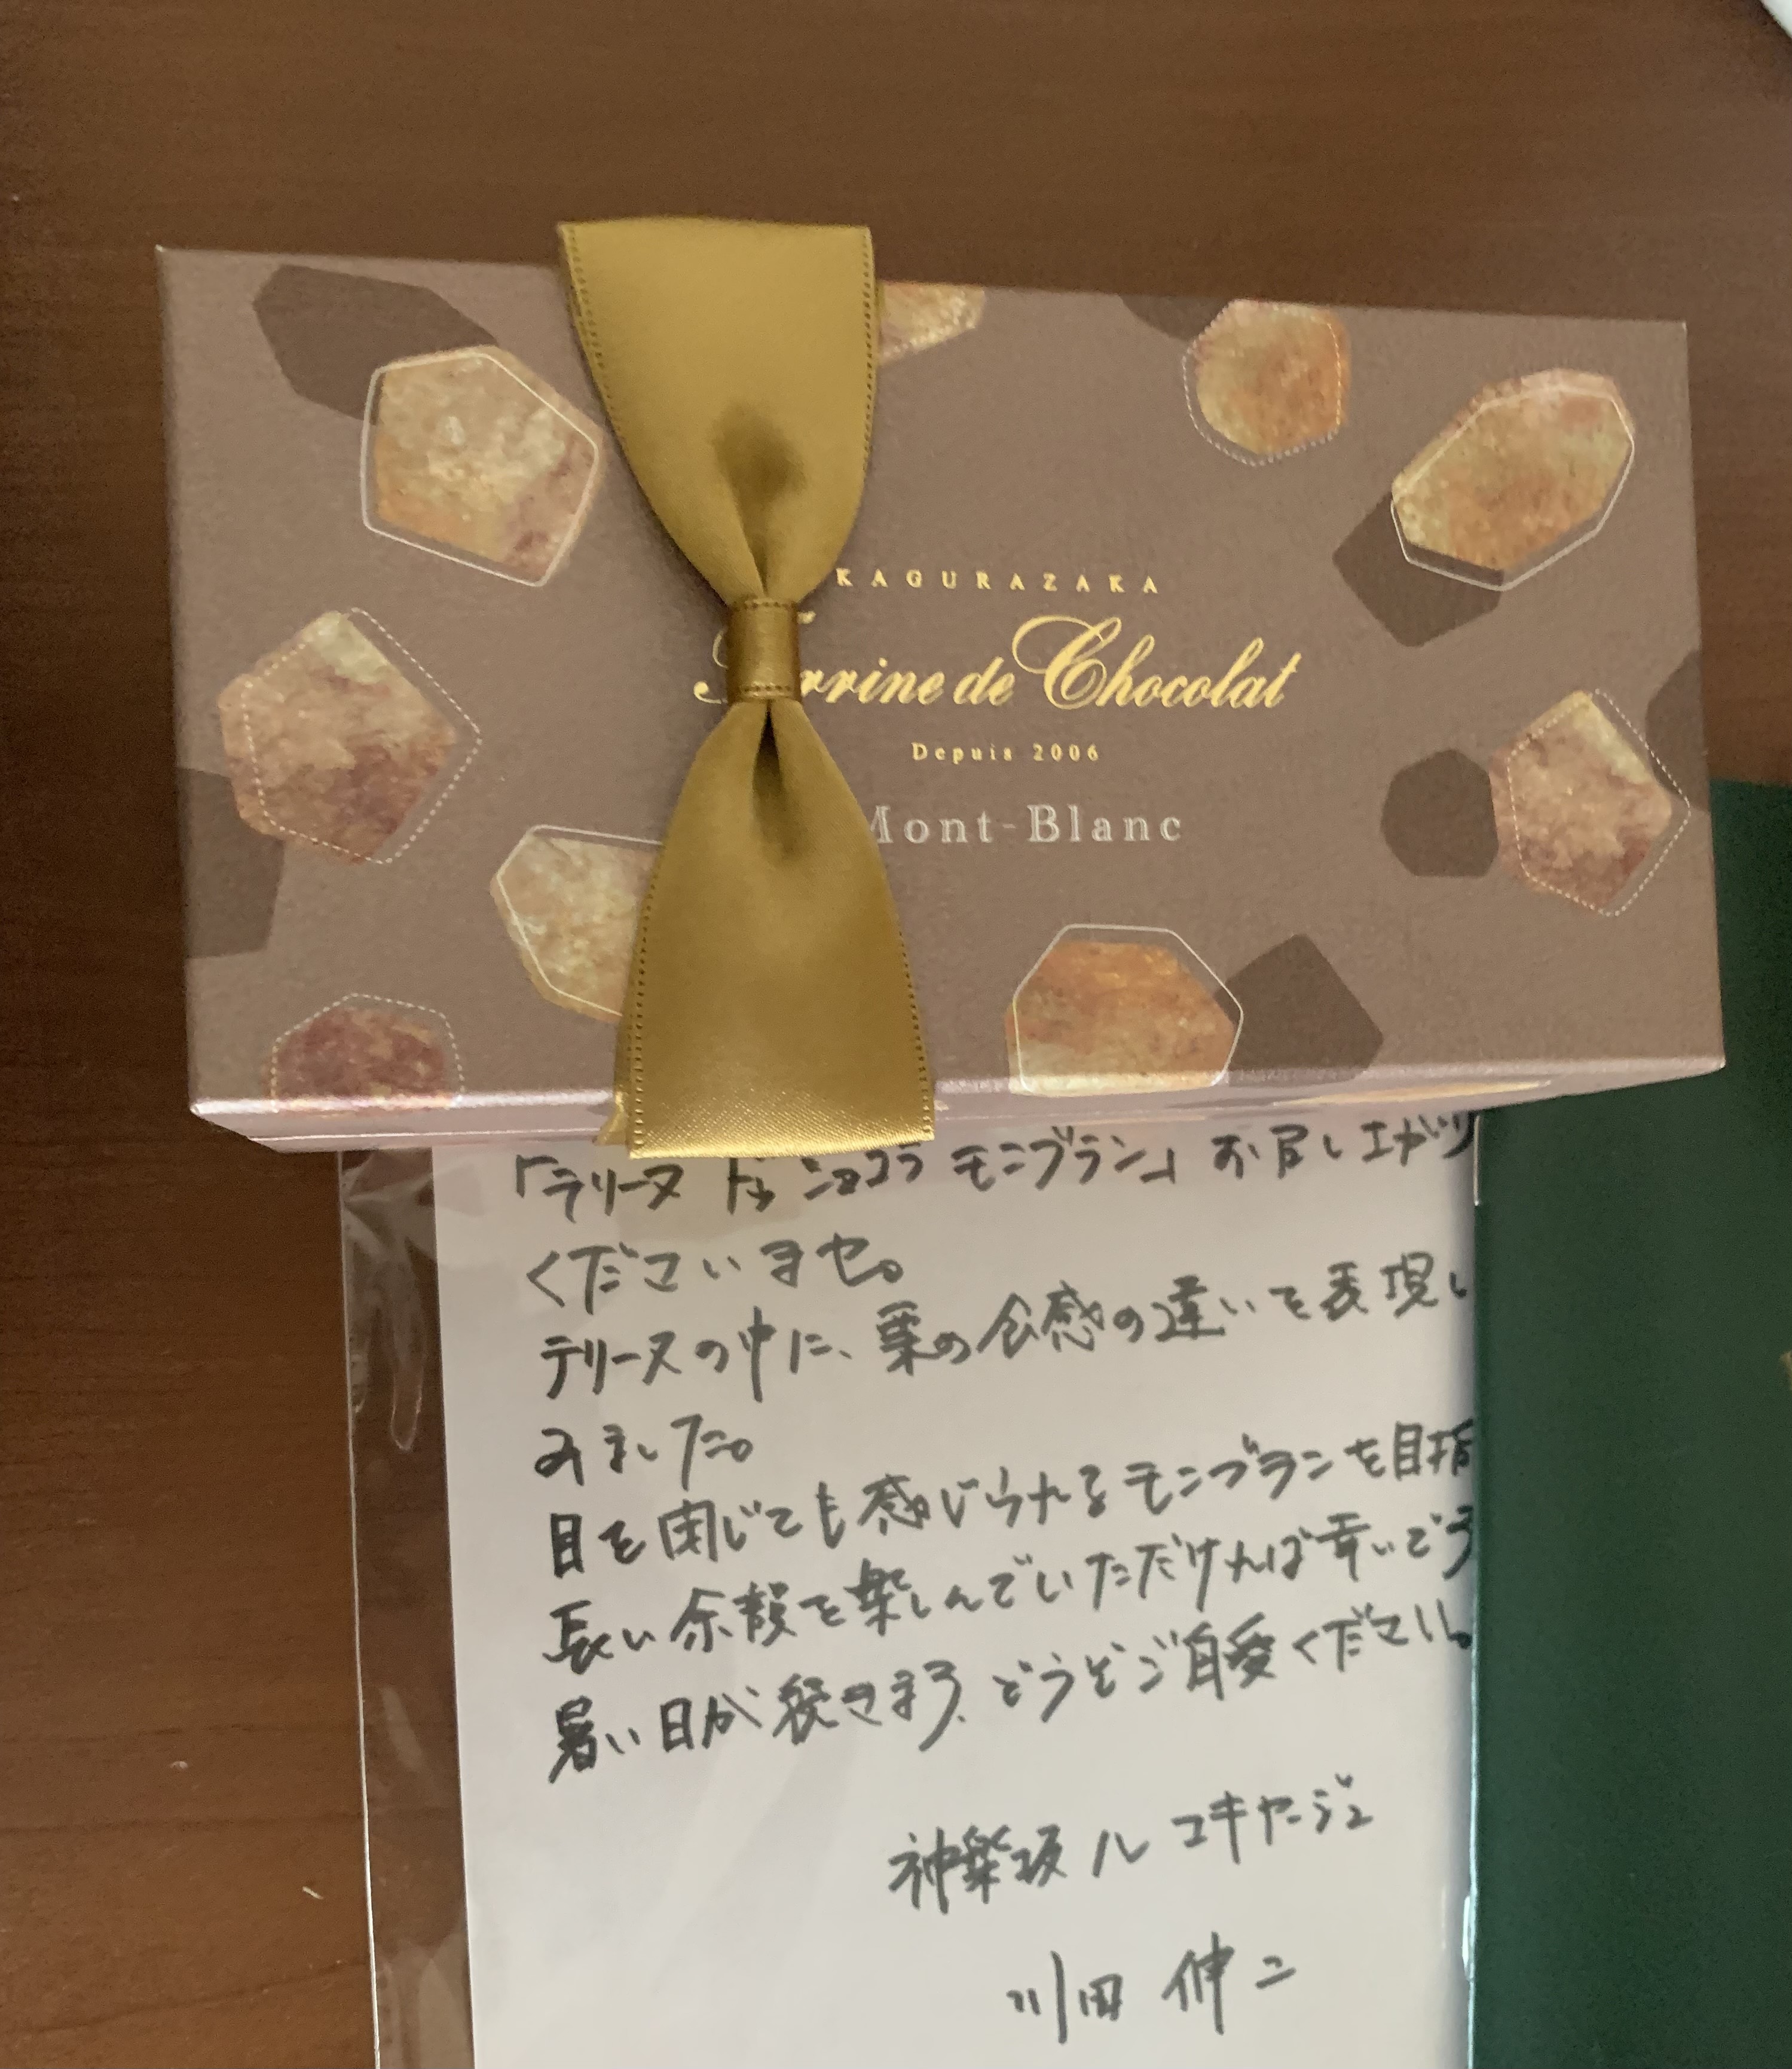 KAGURAZAKA
Terrine de Chocolat
Depuis 2006
Mont-Blanc
「テリーヌ ドゥ ショコラ モンブラン」お召し上がり
くださいませ。
テリーヌの中に、栗の食感の違いを表現し
みました。
目を閉じても感じられるモンブランを目指
長い余韻を楽しんでいただければ幸いです
暑い日が続きます、どうぞご自愛ください。
神楽坂 ル コキヤージュ
川田 伸二